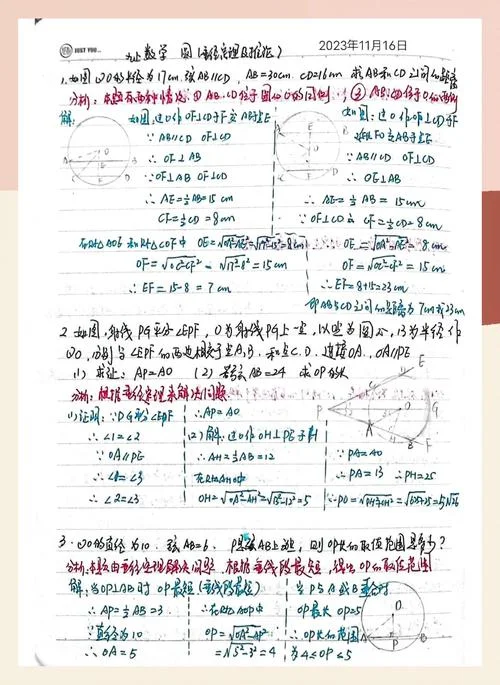 JUST YOU...
九上数学 圆(垂径定理及推论)
2023年11月16日
1.如图 ⊙O的半径为17cm 弦AB∥CD, AB=30cm CD=16cm 求AB和CD之间的距离
分析:本题有两种情况:① AB、CD位于圆心O的同侧;② AB、CD位于O的两侧
解: 如图,过O作OF⊥CD于F 交AB于E
∵ AB∥CD OF⊥CD
∴ OF⊥AB
∵ OF⊥AB OF⊥CD
∴ AE=½AB=15cm
CF=½CD=8cm
在Rt△AOE和Rt△COF中 OE=√OA²-AE²=√17²-15²=8cm
OF=√OC²-CF²=√17²-8²=15cm
∴ EF=15-8=7cm
如图:过O作OF⊥CD于F
延长FO交AB于点E
∵ AB∥CD OF⊥CD
∴ OE⊥AB
∴ AE=½AB=15cm
∵ OF⊥CD ∴ CF=½CD=8cm
∴ OE=√OA²-AE²=8cm
OF=√OC²-CF²=15cm
∴ EF=8+15=23cm
即AB与CD之间的距离为7cm或23cm
2.如图,射线PG平分∠EPF,O为射线PG上一点,以O为圆心,13为半径作
⊙O,分别与∠EPF的两边相交于A、B,和点C、D,连接OA,OA∥PE
(1) 求证:AP=AO (2) 若弦AB=24 求OP的长
分析:根据垂径定理来解决问题
(1)证明:∵PG平分∠EPF
∴ ∠1=∠2
∵ OA∥PE
∴ ∠1=∠3
∴ ∠2=∠3
∴AP=AO
(2)解:过O作OH⊥
∴ AH=½AB=12
在Rt△AHO中
OH=√OA²-AH²=√13²-12²=5
∵ PA=AO
∴ PA=13 ∴ PH=25
∴PO=√PH²+OH²=√625+25=5√26
3.⊙O的直径为10,弦AB=6,P是弦AB上一动点,则OP长的取值范围是多少?
分析:本题由垂径定理解决问题,根据垂线段最短,得出OP的取值范围
解:当OP⊥AB时 OP最短(垂线段最短)
∴ AP=½AB=3
∵直径为10
∴ OA=5
∴在Rt△AOP中
OP=√OA²-AP²
=√5²-3²=4
当P与A或B重合时
OP最大 OP=5
∴ OP长的范围
为4≤OP≤5